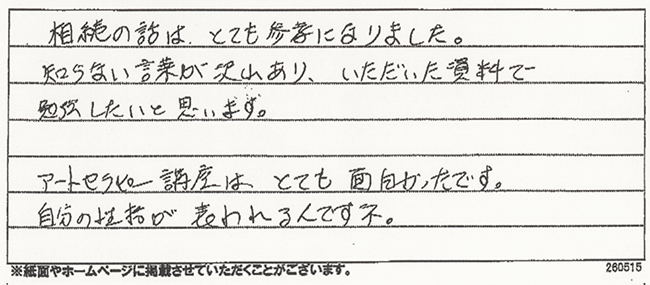 相続の話は、とても参考になりました。
知らない言葉が沢山あり、いただいた資料で
勉強したいと思います。
アートセラピー講座は、とても面白かったです。
自分の性格が表われるんですネ。
※紙面やホームページに掲載させていただくことがございます。
260515